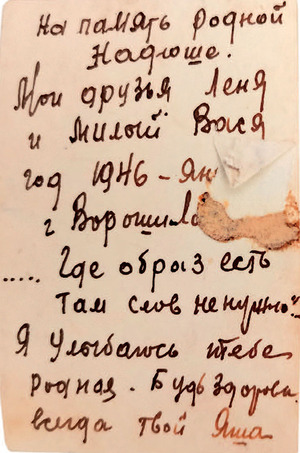 На память родной
Надюше.
Мои друзья Леня
и милый Вася
год 1946 - Ян
г Ворошило
..... Где образ есть
там слов не нужно"..
Я улыбаюсь тебе
родная. Будь здорова.
всегда твой Яша